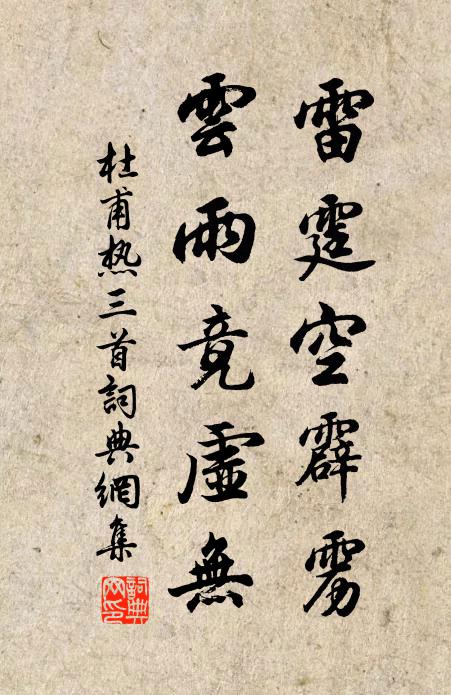 雷霆空霹雳
雲雨竟虛無
杜甫熱三首詞典網集
詞典網印